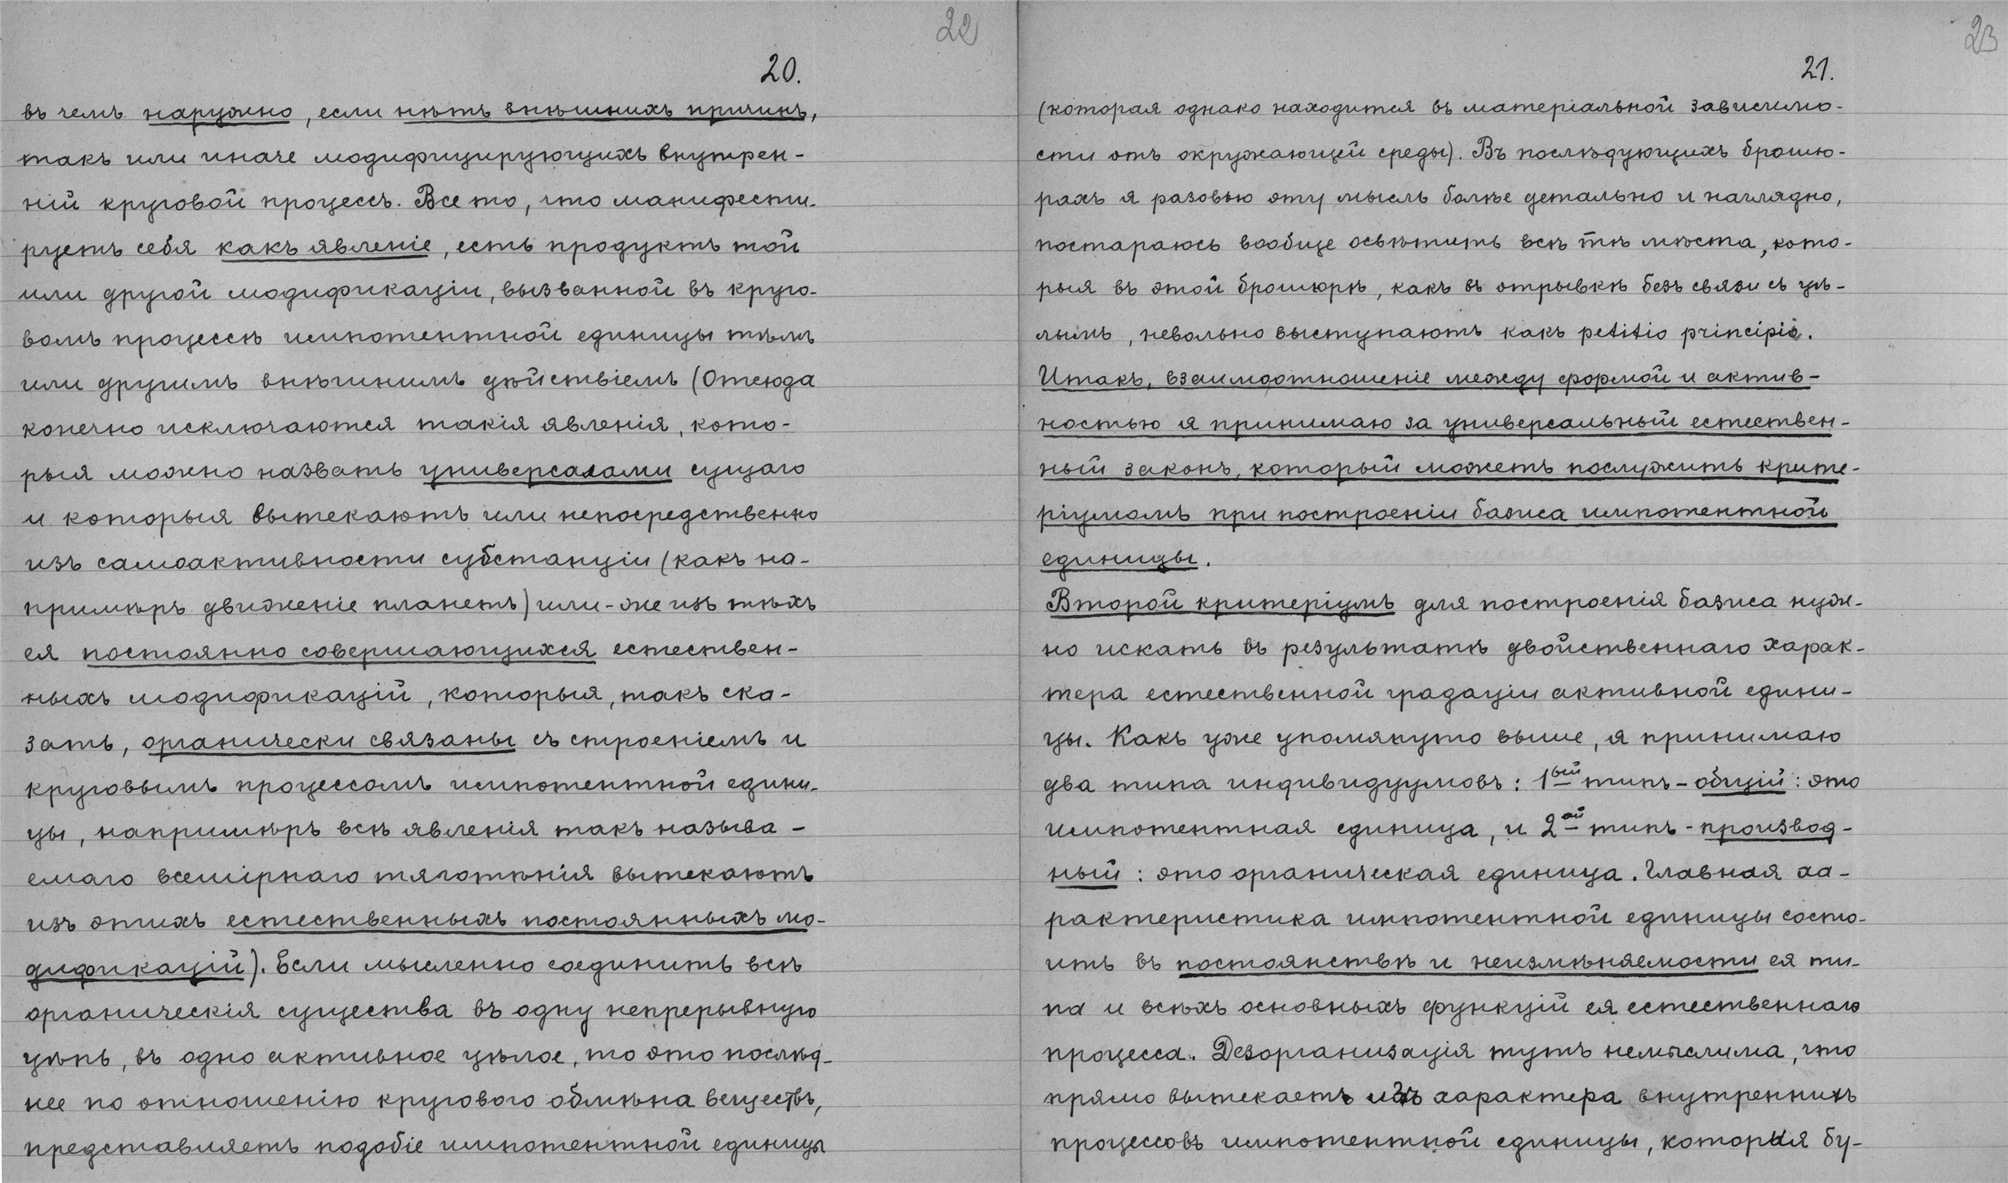 22
20.
въ чемъ наружно, если нѣтъ внѣшнихъ причинъ,
такъ или иначе модифицирующихъ внутрен-
нiй круговой процессъ. Все то, что манифести-
руетъ себя какъ явленiе, есть продуктъ той
или другой модификацiи, вызванной въ круго-
вомъ процессѣ импотентной единицы тѣмъ
или другимъ внѣшнимъ дѣйствiемъ (Отсюда
конечно исключаются такiя явленiя, кото-
рыя можно назвать универсалами сущаго
и которыя вытекаютъ или непосредственно
изъ самоактивности субстанцiи (какъ на-
примѣръ движенiе планетъ) или-же изъ тѣхъ
ея постоянно совершающихся естествен-
ныхъ модификацiй, которыя, такъ ска-
зать, органически связаны съ строенiемъ и
круговымъ процессомъ импотентной едини-
цы, напримѣръ всѣ явленiя такъ называ-
емаго всемiрнаго тяготѣнiя вытекаютъ
изъ этихъ естественныхъ постоянныхъ мо-
дификацiй). Если мысленно соединить всѣ
органическiя существа въ одну непрерывную
цѣпь, въ одно активное цѣлое, то это послѣд-
нее по отношенiю кругового обмѣна веществъ,
представляетъ подобiе импотентной единицы
23
21.
(которая однако находится въ матерiальной зависимо-
сти отъ окружающей среды). Въ послѣдующихъ брошю-
рахъ я разовью эту мысль болѣе детально и наглядно,
постараюсь вообще освѣтить всѣ тѣ мѣста, кото-
рыя въ этой брошюрѣ, какъ въ отрывкѣ безъ связи съ цѣ-
лымъ, невольно выступаютъ какъ petitio principii.
Итакъ, взаимоотношенiе между формой и актив-
ностью я принимаю за универсальный естествен-
ный законъ, который можетъ послужить крите-
рiумомъ при построенiи базиса импотентной
единицы.
Второй критерiумъ для построенiя базиса нуж-
но искать въ результатѣ двойственнаго харак-
тера естественной градацiи активной едини-
цы. Какъ уже упомянуто выше, я принимаю
два типа индивидуумовъ: 1ый типъ - общiй: это
импотентная единица, и 2ой типъ - производ-
ный: это органическая единица. Главная ха-
рактеристика импотентной единицы состо-
итъ въ постоянствѣ и неизмѣняемости ея ти-
па и всѣхъ основныхъ функцiй ея естественнаго
процесса. Дезорганизацiя тутъ немыслима, что
прямо вытекаетъ изъ характера внутреннихъ
процессовъ импотентной единицы, которыя бу-